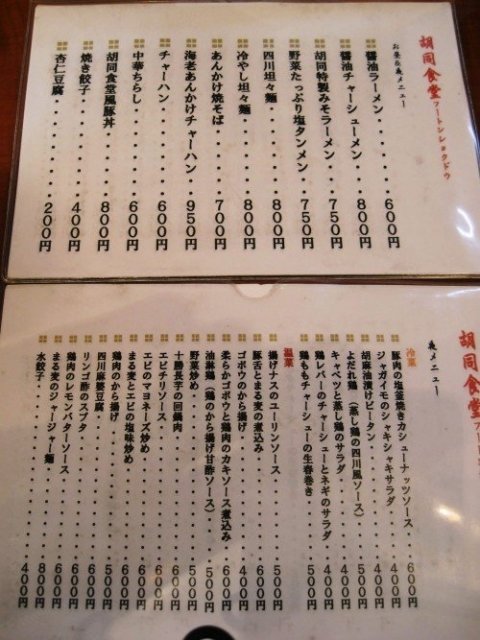 胡同食堂 フートンショクドウ
お昼&夜メニュー
醤油ラーメン・・・・・・600円
醤油チャーシューメン・・・800円
胡同特製みそラーメン・・・750円
野菜たっぷり塩タンメン・・・750円
四川坦々麺・・・・・・・800円
冷やし坦々麺・・・・・・800円
あんかけ焼そば・・・・・700円
海老あんかけチャーハン・・950円
チャーハン・・・・・・・600円
中華ちらし・・・・・・・600円
胡同食堂風豚丼・・・・・800円
焼き餃子・・・・・・・・400円
杏仁豆腐・・・・・・・・200円
胡同食堂
夜メニュー
冷菜
豚肉の塩釜焼きカシューナッツソース・・600円
ジャガイモのシャキシャキサラダ・・・400円
胡麻油漬けピータン・・・・・・400円
よだれ鶏(蒸し鶏の四川風ソース)・・・500円
キャベツと蒸し鶏のサラダ・・・・400円
鶏レバーのチャーシューとネギのサラダ・・400円
鶏ももチャーシューの生春巻き・・・500円
温菜
揚げナスのユーリンソース・・・・500円
豚舌とまる麦の煮込み・・・・・600円
ゴボウのから揚げ・・・・・・400円
柔らかゴボウと鶏肉のカキソース煮込み・・600円
油淋鶏(鶏のから揚げ甘酢ソース)・・・500円
野菜炒め・・・・・・・・・500円
十勝長芋の回鍋肉・・・・・・600円
エビチリソース・・・・・・・600円
エビのマヨネーズ炒め・・・・・600円
まる麦とエビの塩味炒め・・・・・600円
鶏肉のから揚げ・・・・・・・500円
四川麻婆豆腐・・・・・・・・600円
リンゴ酢のスブタ・・・・・・600円
鶏肉のレモンバターソース・・・・600円
まる麦のジャージャー麺・・・・・800円
水餃子・・・・・・・・・・400円